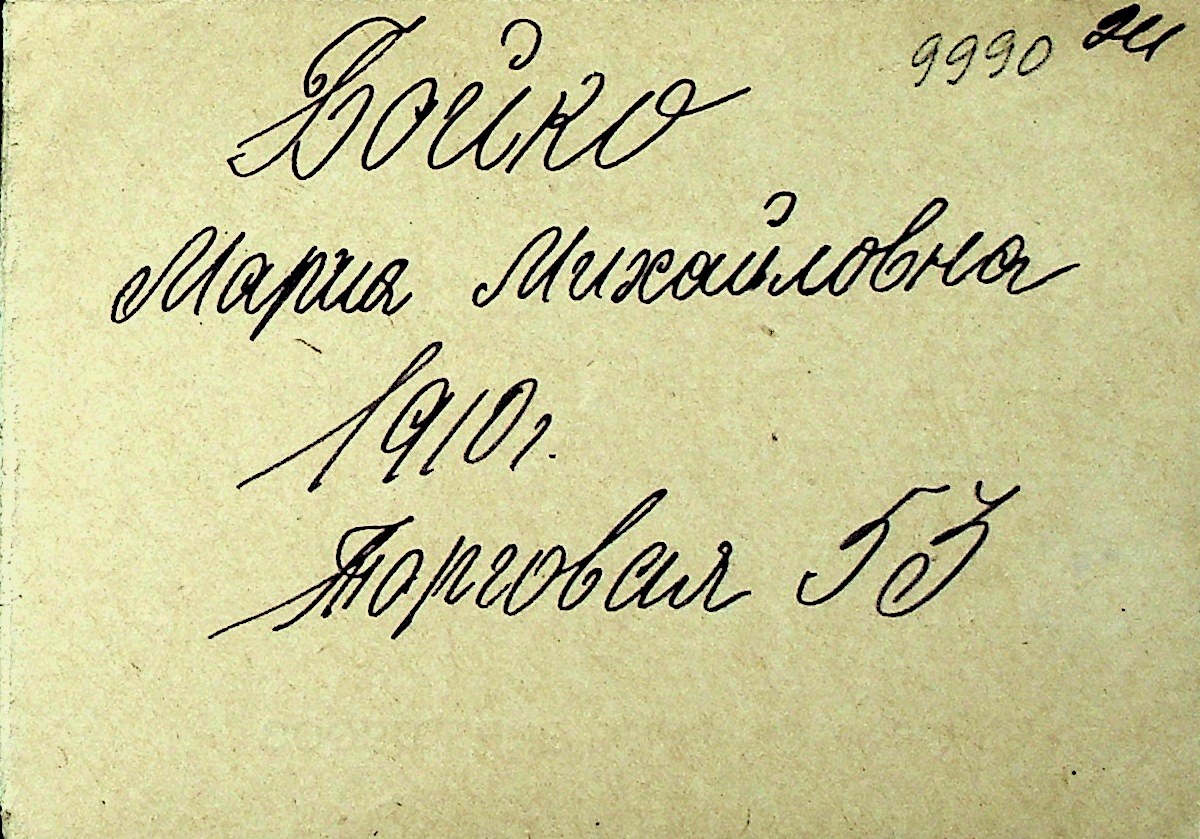 9990
Бойко
Мария Михайловна
1910г.
Торговая 53